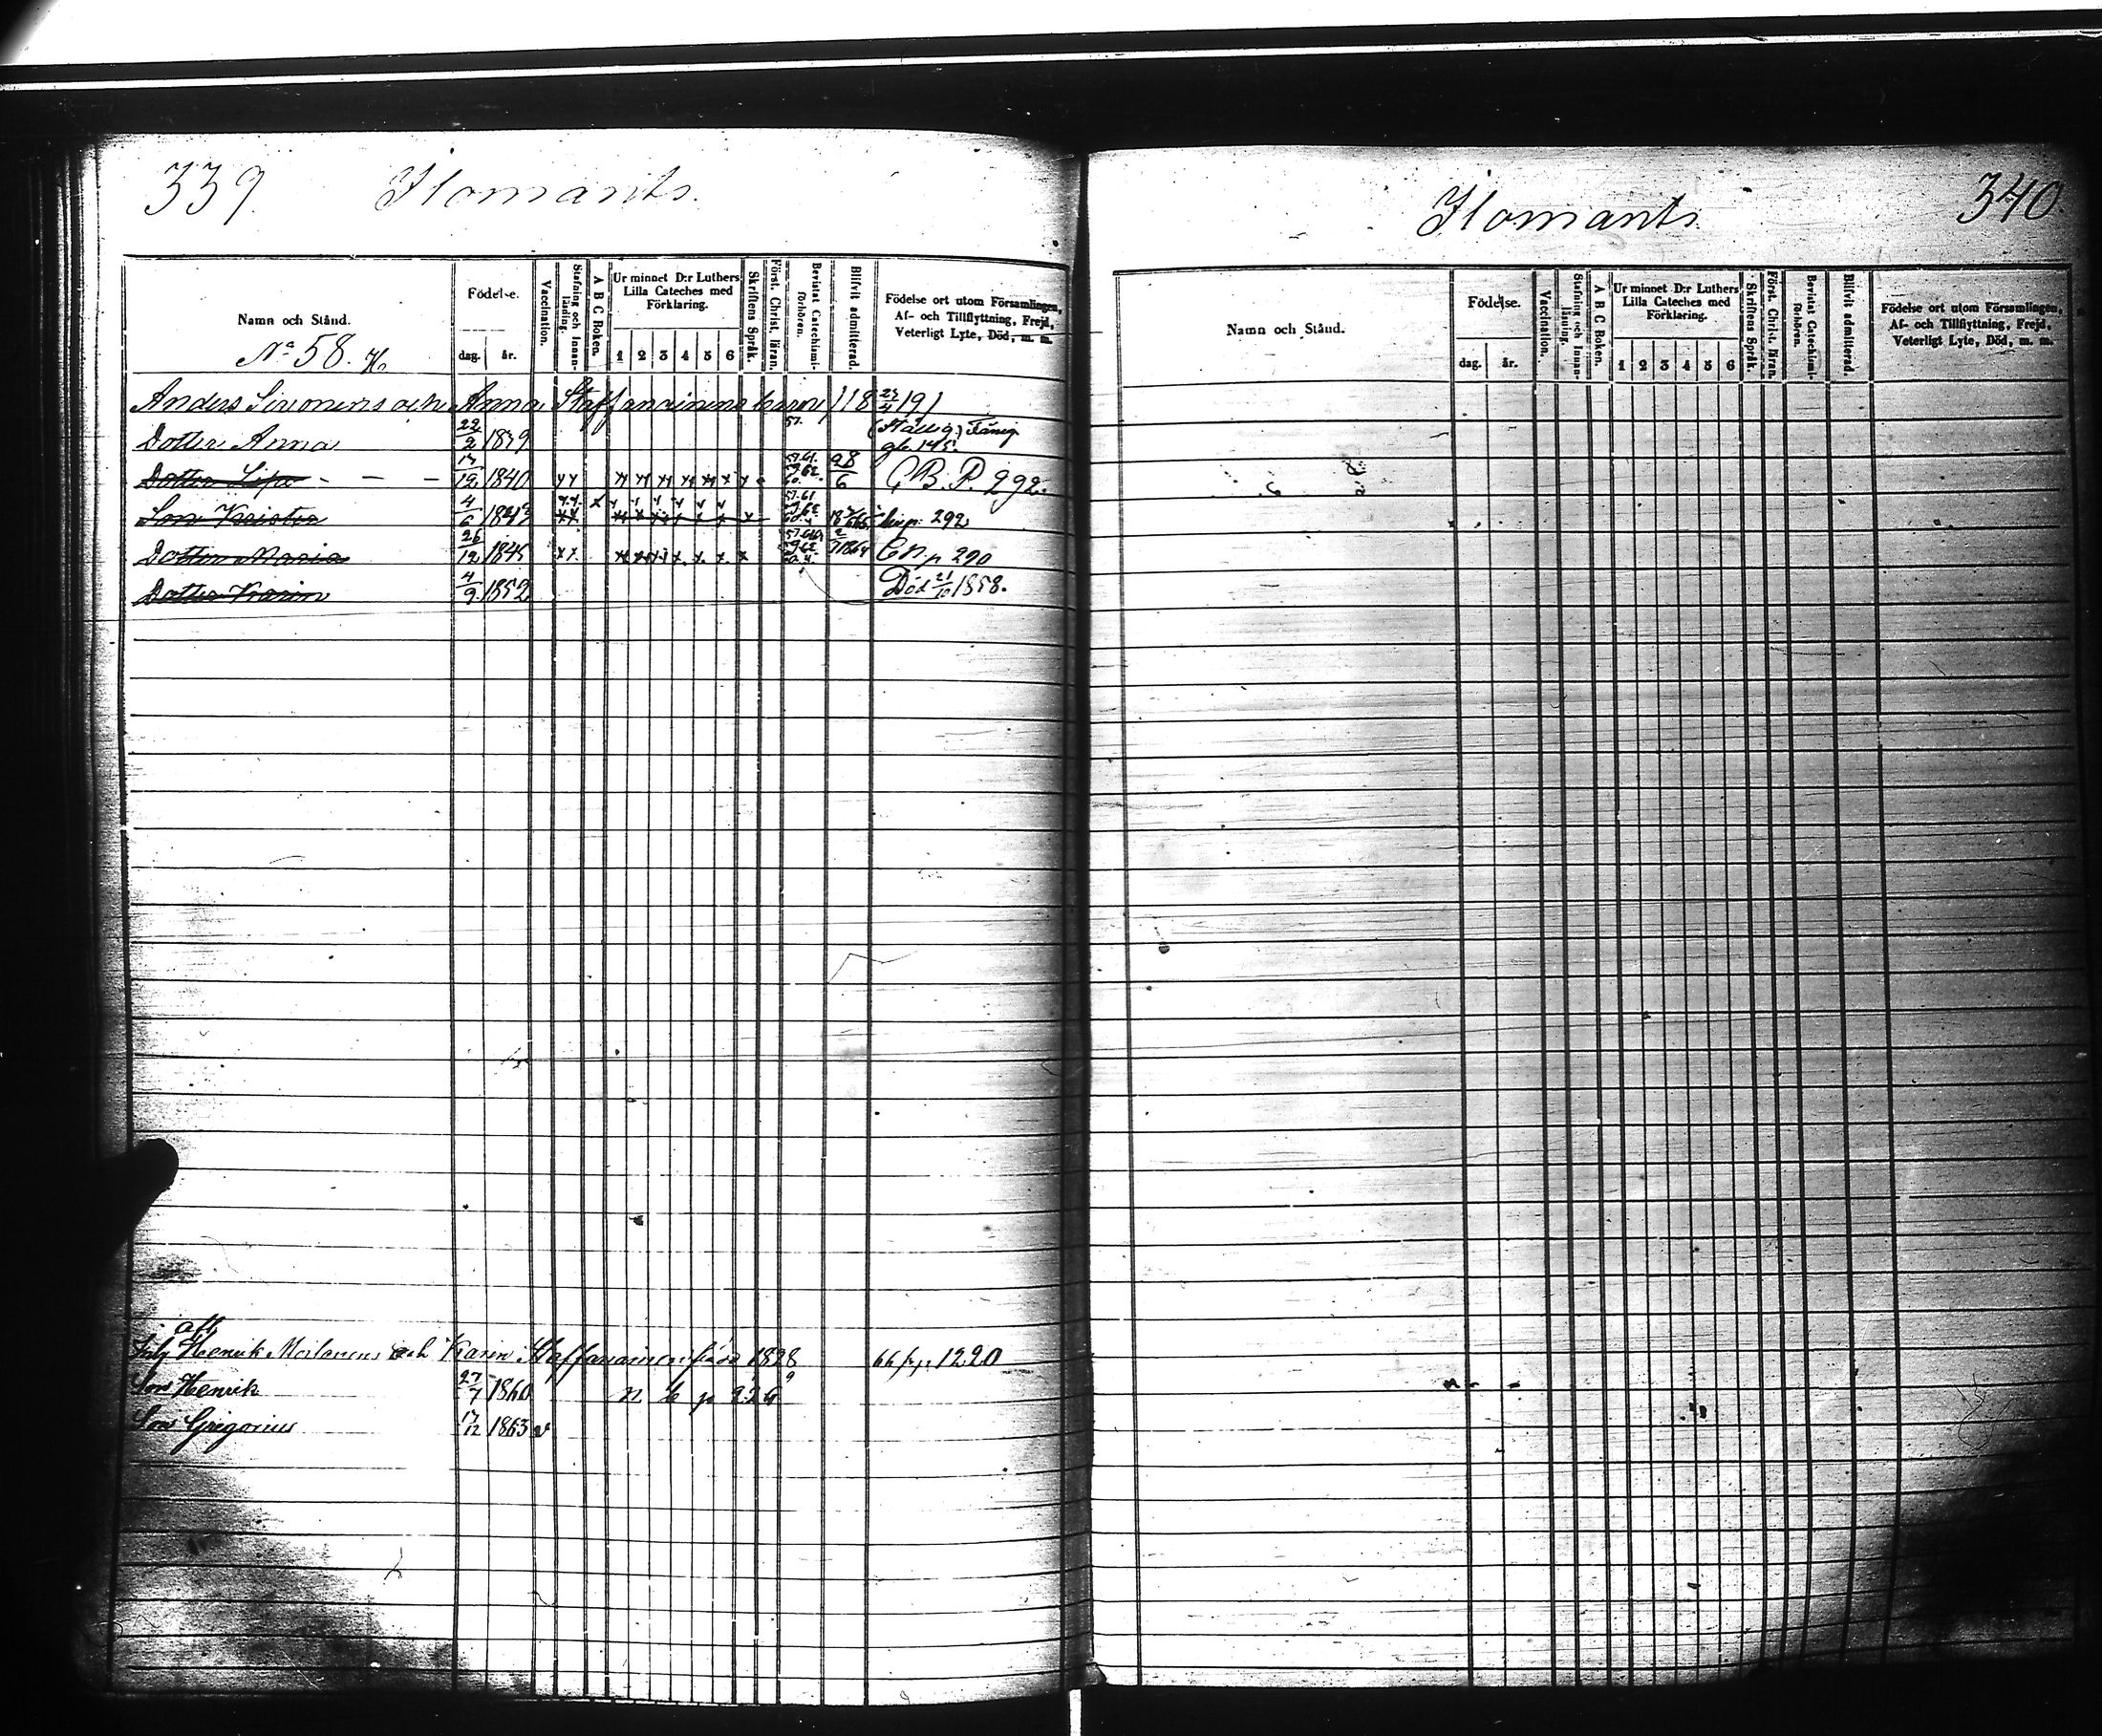 339. Ilomants.
Namn och Stånd.
No 58.
Födelse.
dag. år.
Vaccination.
Stafning och Innanläsning.
A B C Boken.
Ur minnet D:r Luthers Lilla Cateches med Förklaring.
1 2 3 4 5 6
Skriftens Språk.
Först. Christ. läran.
Bevistat Catechismiförhören.
Blifvit admitterad.
Födelse ort utom Församlingen, Af- och Tillflyttning, Frejd, Veterligt Lyte, Död, m. m.
Anders Simonens och Anna Staffanainens barn 118 191
Dotter Anna 22/2 1839 57.
145.
Dotter Lisa - - - 17/12 1840 28/6 C. B. P. 292.
Son Krister 4/6 292
Dotter Maria 26/12 1845 1864 p 290
Dotter Karin 4/9 1852 Död 21/10 1858.
Henrik Moilanens och Karin Staffanainen född 1828 1220
Son Henrik 27/7 1860
Son Gregorius 17/12 1863 v
Ilomants 340.
Namn och Stånd.
Födelse.
dag. år.
Vaccination.
Stafning och Innanläsning.
A B C Boken.
Ur minnet D:r Luthers Lilla Cateches med Förklaring.
1 2 3 4 5 6
Skriftens Språk.
Först. Christ. läran.
Bevistat Catechismiförhören.
Blifvit admitterad.
Födelse ort utom Församlingen, Af- och Tillflyttning, Frejd, Veterligt Lyte, Död, m. m.